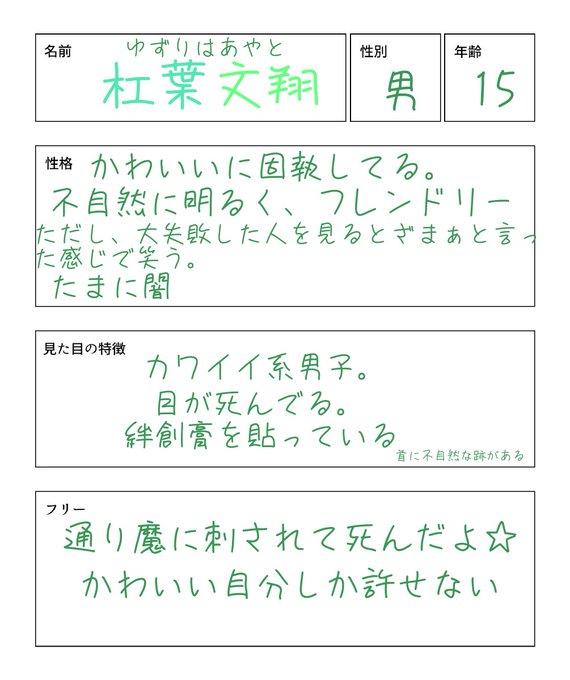 名前
ゆずりはあやと
杠葉文翔
性別
男
年齢
15
性格
かわいいに固執してる。
不自然に明るく、フレンドリー
ただし、大失敗した人を見るとざまぁと言っ
た感じで笑う。
たまに闇
見た目の特徴
カワイイ系男子。
目が死んでる。
絆創膏を貼っている
首に不自然な跡がある
フリー
通り魔に刺されて死んだよ☆
かわいい自分しか許せない